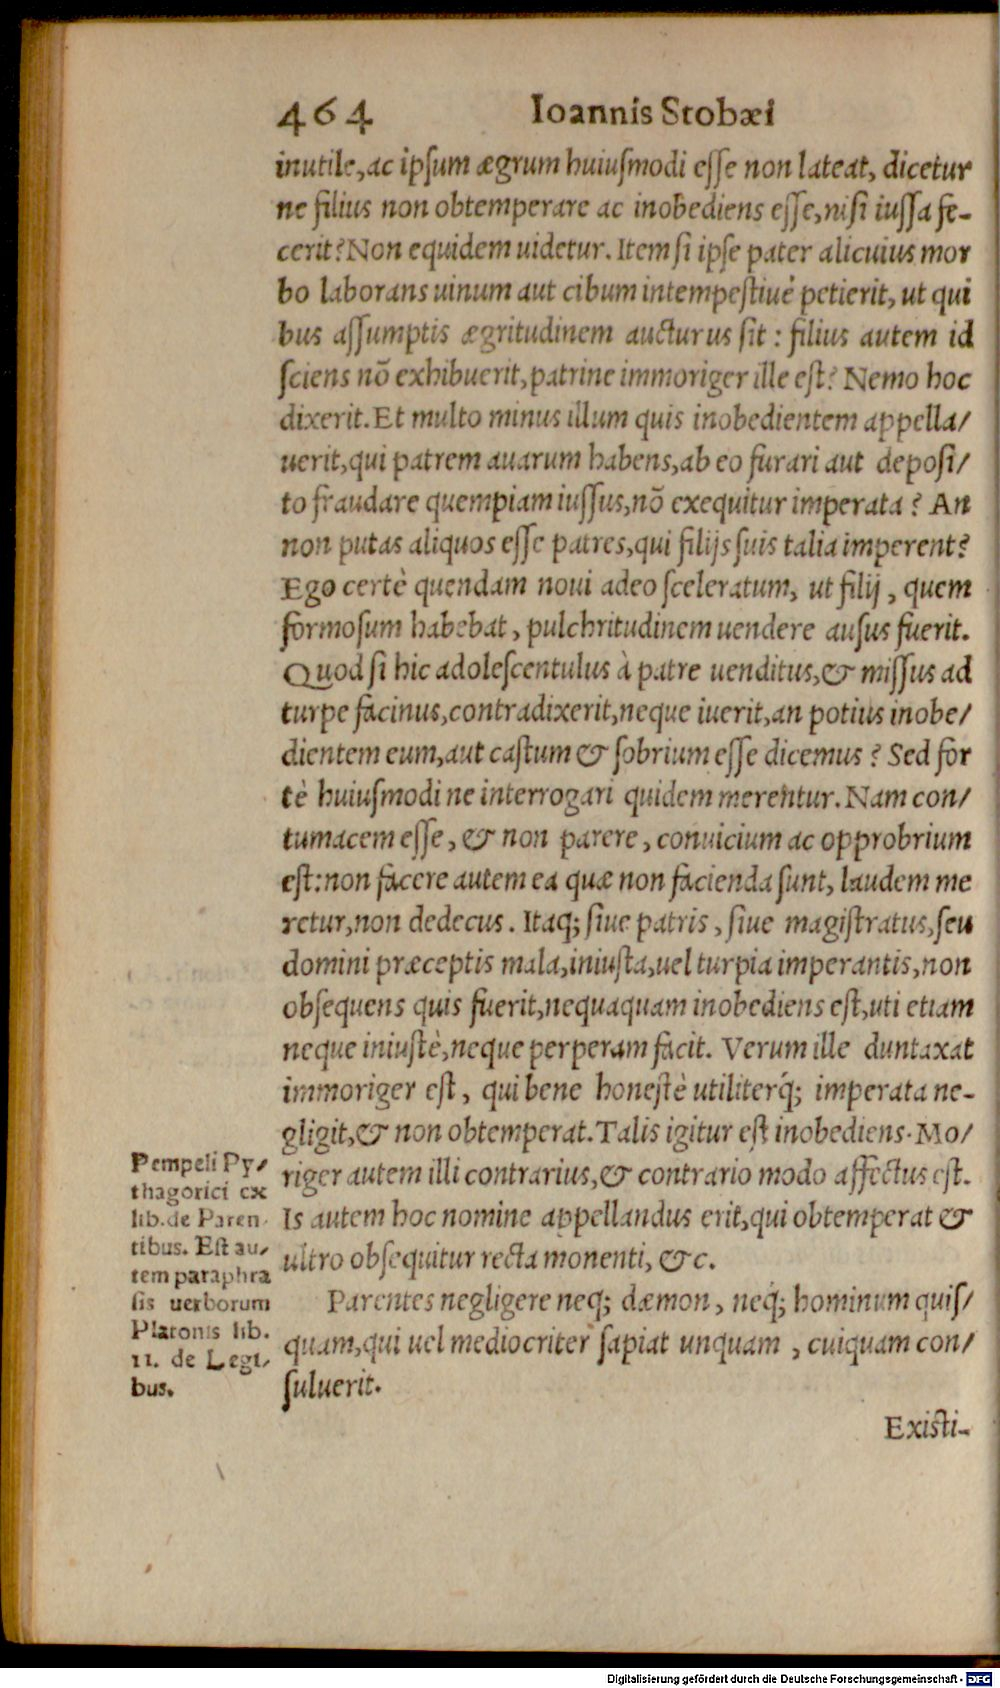 464 Ioannis Stobæi
inutile, ac ipſum ægrum huiuſmodi eſſe non lateat, dicetur
ne filius non obtemperare ac inobediens eſſe, niſi iuſſa fe-
cerit? Non equidem uidetur. Item ſi ipſe pater alicuius mor
bo laborans uinum aut cibum intempeſtiuè petierit, ut qui
bus aſſumptis ægritudinem aucturus ſit : filius autem id
ſciens nõ exhibuerit, patrine immoriger ille eſt? Nemo hoc
dixerit. Et multo minus illum quis inobedientem appella/
uerit, qui patrem auarum habens, ab eo furari aut depoſi/
to fraudare quempiam iuſſus, nõ exequitur imperata ? An
non putas aliquos eſſe patres, qui filijs ſuis talia imperent?
Ego certè quendam noui adeo ſceleratum, ut filij , quem
formoſum habebat , pulchritudinem uendere auſus fuerit.
Quod ſi hic adoleſcentulus à patre uenditus, & miſſus ad
turpe facinus, contradixerit, neque iuerit, an potius inobe/
dientem eum, aut caſtum & ſobrium eſſe dicemus ? Sed for
tè huiuſmodi ne interrogari quidem merentur. Nam con/
tumacem eſſe , & non parere , conuicium ac opprobrium
eſt: non facere autem ea quæ non facienda ſunt, laudem me
retur, non dedecus . Itaq; ſiue patris , ſiue magiſtratus, ſeu
domini præceptis mala, iniuſta, uel turpia imperantis, non
obſequens quis fuerit, nequaquam inobediens eſt, uti etiam
neque iniuſtè, neque perperam facit. Verum ille duntaxat
immoriger eſt , qui bene honeſtè utiliterq́; imperata ne-
gligit, & non obtemperat. Talis igitur eſt inobediens. Mo/
riger autem illi contrarius, & contrario modo affectus eſt.
Is autem hoc nomine appellandus erit, qui obtemperat &
ultro obſequitur recta monenti, &c.
Pempeli Py/
thagorici ex
lib. de Paren
tibus. Eſt au/
tem paraphra
ſis uerborum
Platonis lib.
11. de Legi/
bus.
Parentes negligere neq; dæmon , neq́; hominum quiſ/
quam, qui uel mediocriter ſapiat unquam , cuiquam con/
ſuluerit.
Exiſti-
Digitalisierung gefördert durch die Deutsche Forschungsgemeinschaft - DFG